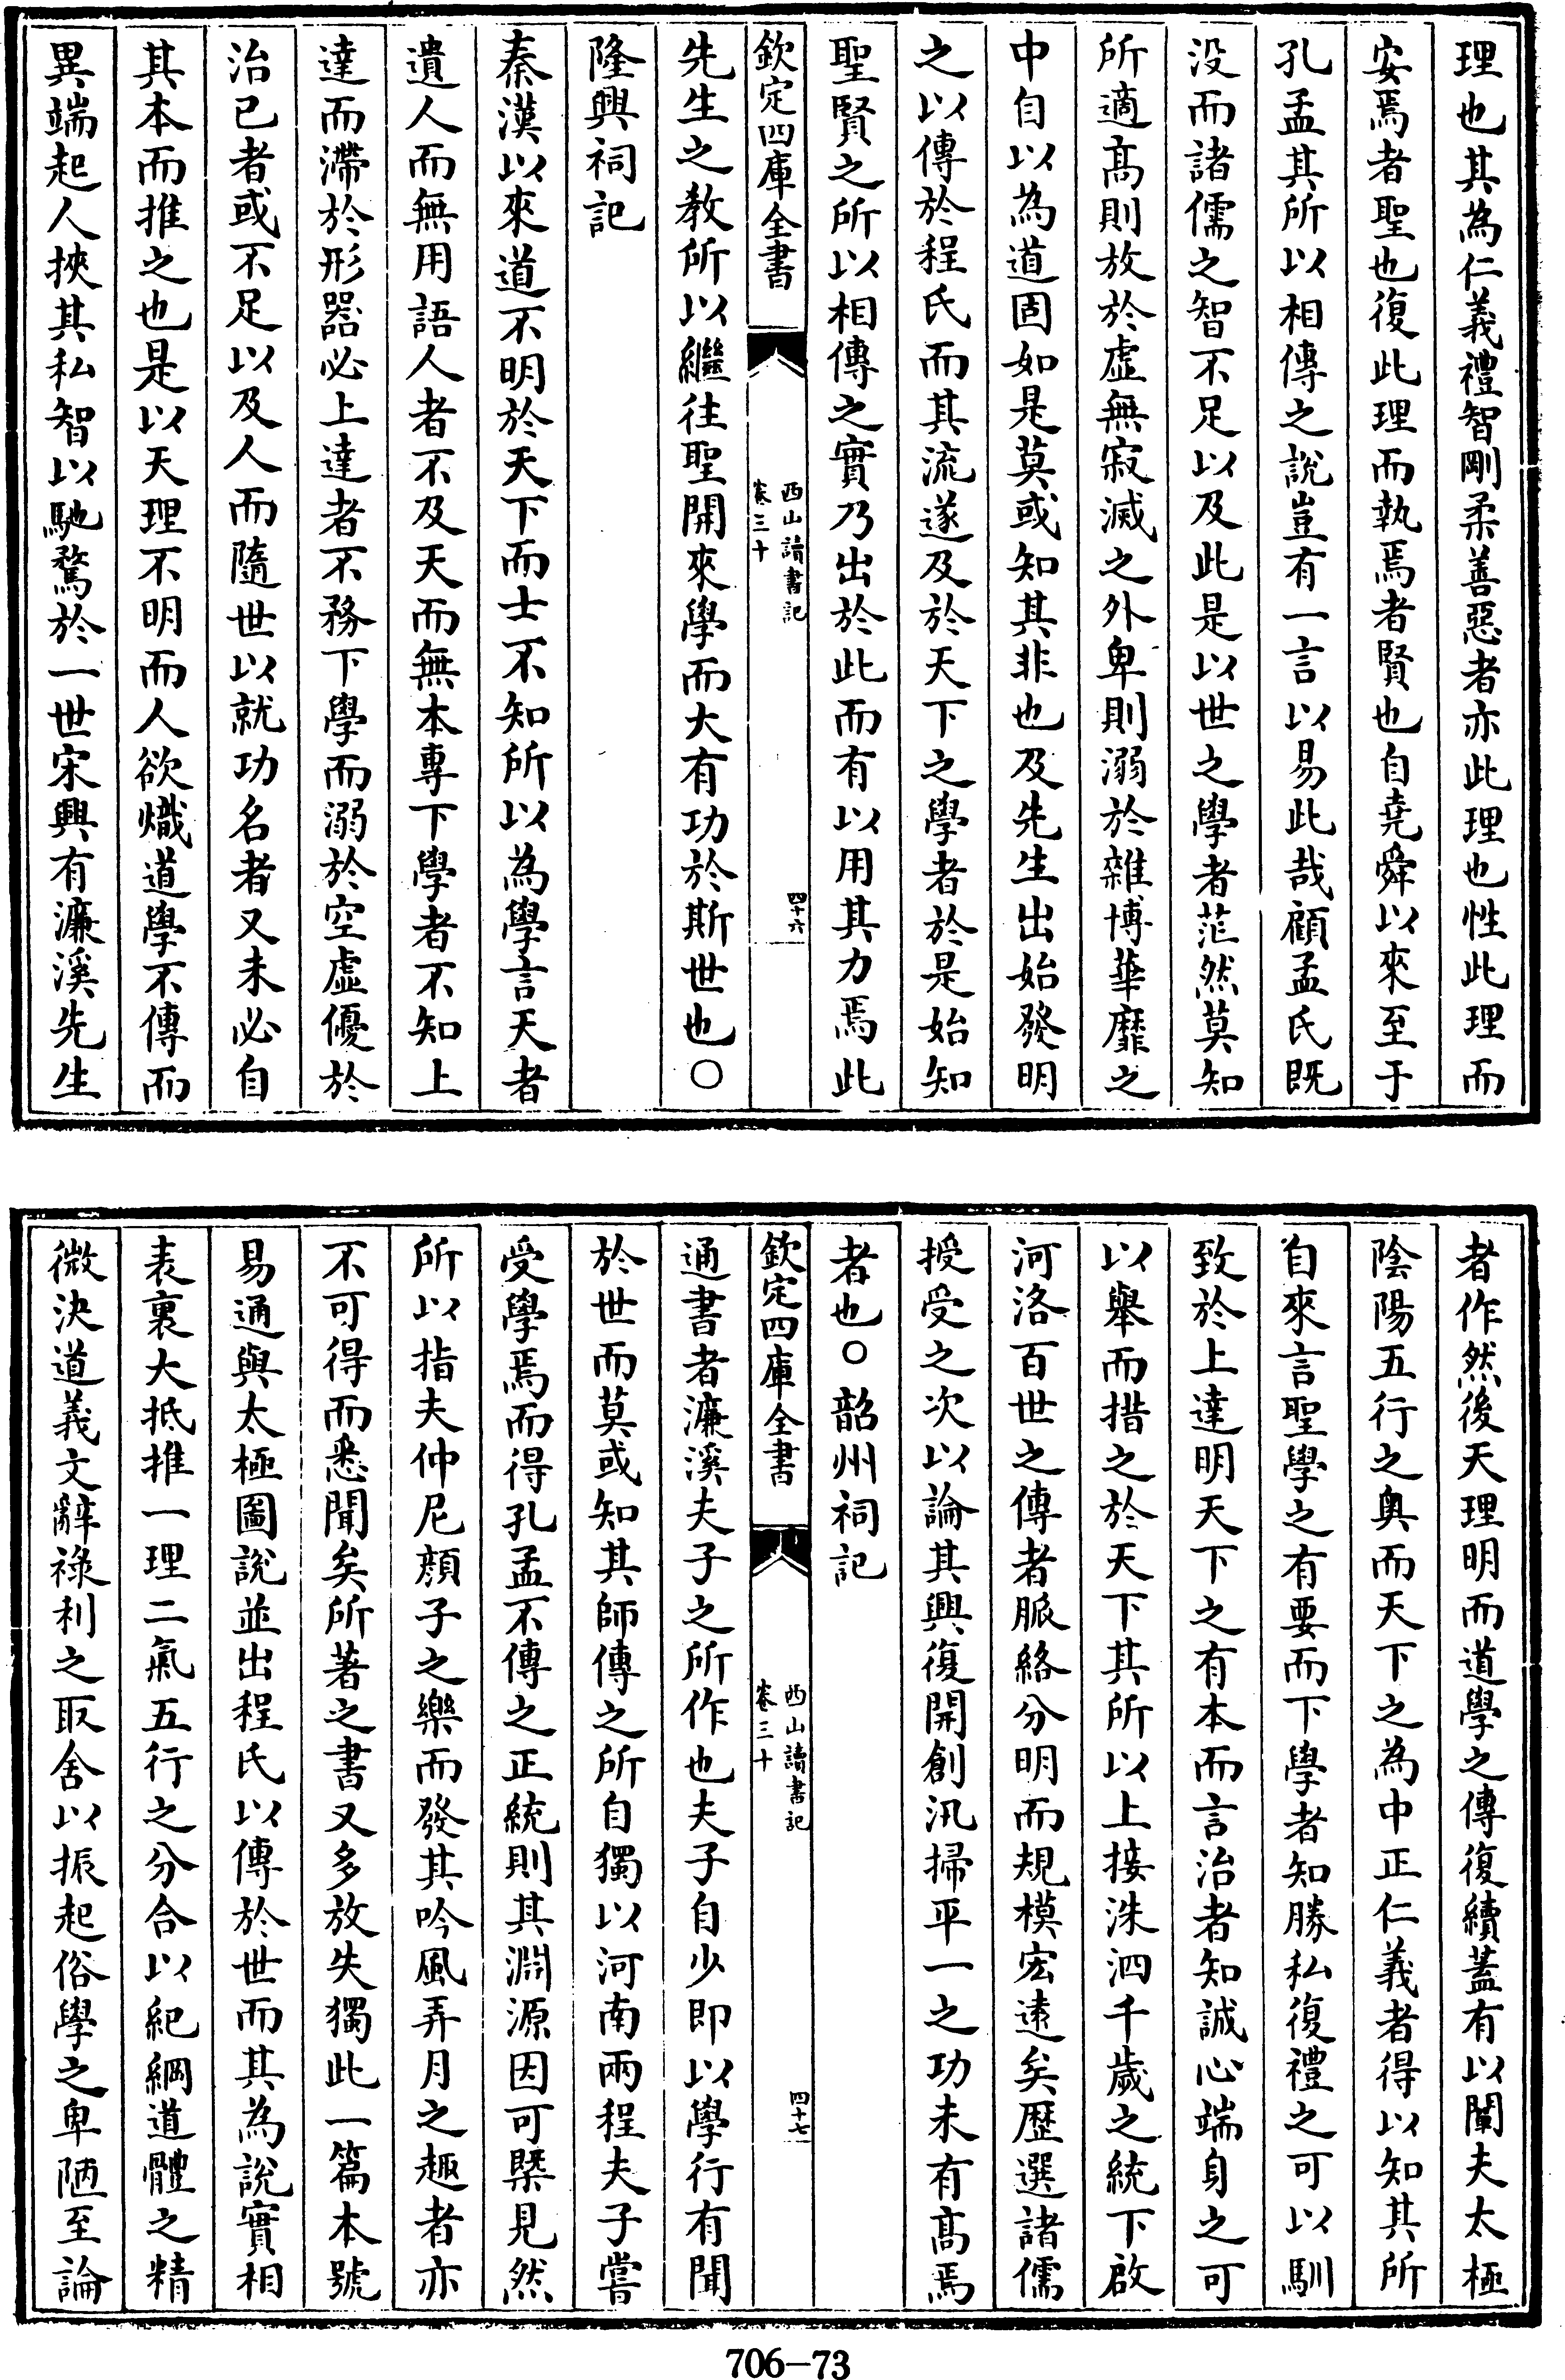 理也其為仁義禮智剛柔善惡者亦此理也性此理而
安焉者聖也復此理而執焉者賢也自堯舜以來至于
孔孟其所以相傳之說豈有一言以易此哉顧孟氏既
没而諸儒之智不足以及此是以世之學者茫然莫知
所適髙則放於虛無寂滅之外卑則溺於雜博華靡之
中自以為道固如是莫或知其非也及先生出始發明
之以傳於程氏而其流遂及於天下之學者於是始知
聖賢之所以相傳之實乃出於此而有以用其力焉此
欽定四庫全書
西山讀書記
卷三十
四十六
先生之教所以繼往聖開來學而大有功於斯世也○
隆興祠記
秦漢以來道不明於天下而士不知所以為學言天者
遺人而無用語人者不及天而無本專下學者不知上
達而滯於形器必上達者不務下學而溺於空虛優於
治已者或不足以及人而隨世以就功名者又未必自
其本而推之也是以天理不明而人欲熾道學不傳而
異端起人挾其私智以馳騖於一世宋興有濂溪先生
者作然後天理明而道學之傳復續蓋有以闡夫太極
陰陽五行之奥而天下之為中正仁義者得以知其所
自來言聖學之有要而下學者知勝私復禮之可以馴
致於上達明天下之有本而言治者知誠心端身之可
以舉而措之於天下其所以上接洙泗千歲之統下啟
河洛百世之傳者脈絡分明而規模宏逺矣歴選諸儒
授受之次以論其興復開創汛掃平一之功未有髙焉
者也○韶州祠記
欽定四庫全書
西山讀書記
卷三十
四十七
通書者濂溪夫子之所作也夫子自少即以學行有聞
於世而莫或知其師傳之所自獨以河南兩程夫子嘗
受學焉而得孔孟不傳之正統則其淵源因可槩見然
所以指夫仲尼顔子之樂而發其吟風弄月之趣者亦
不可得而悉聞矣所著之書又多放失獨此一篇本號
易通與太極圖說並出程氏以傳於世而其為說實相
表裏大抵推一理二氣五行之分合以紀綱道體之精
微決道義文辭祿利之取舍以振起俗學之卑陋至論
706-73